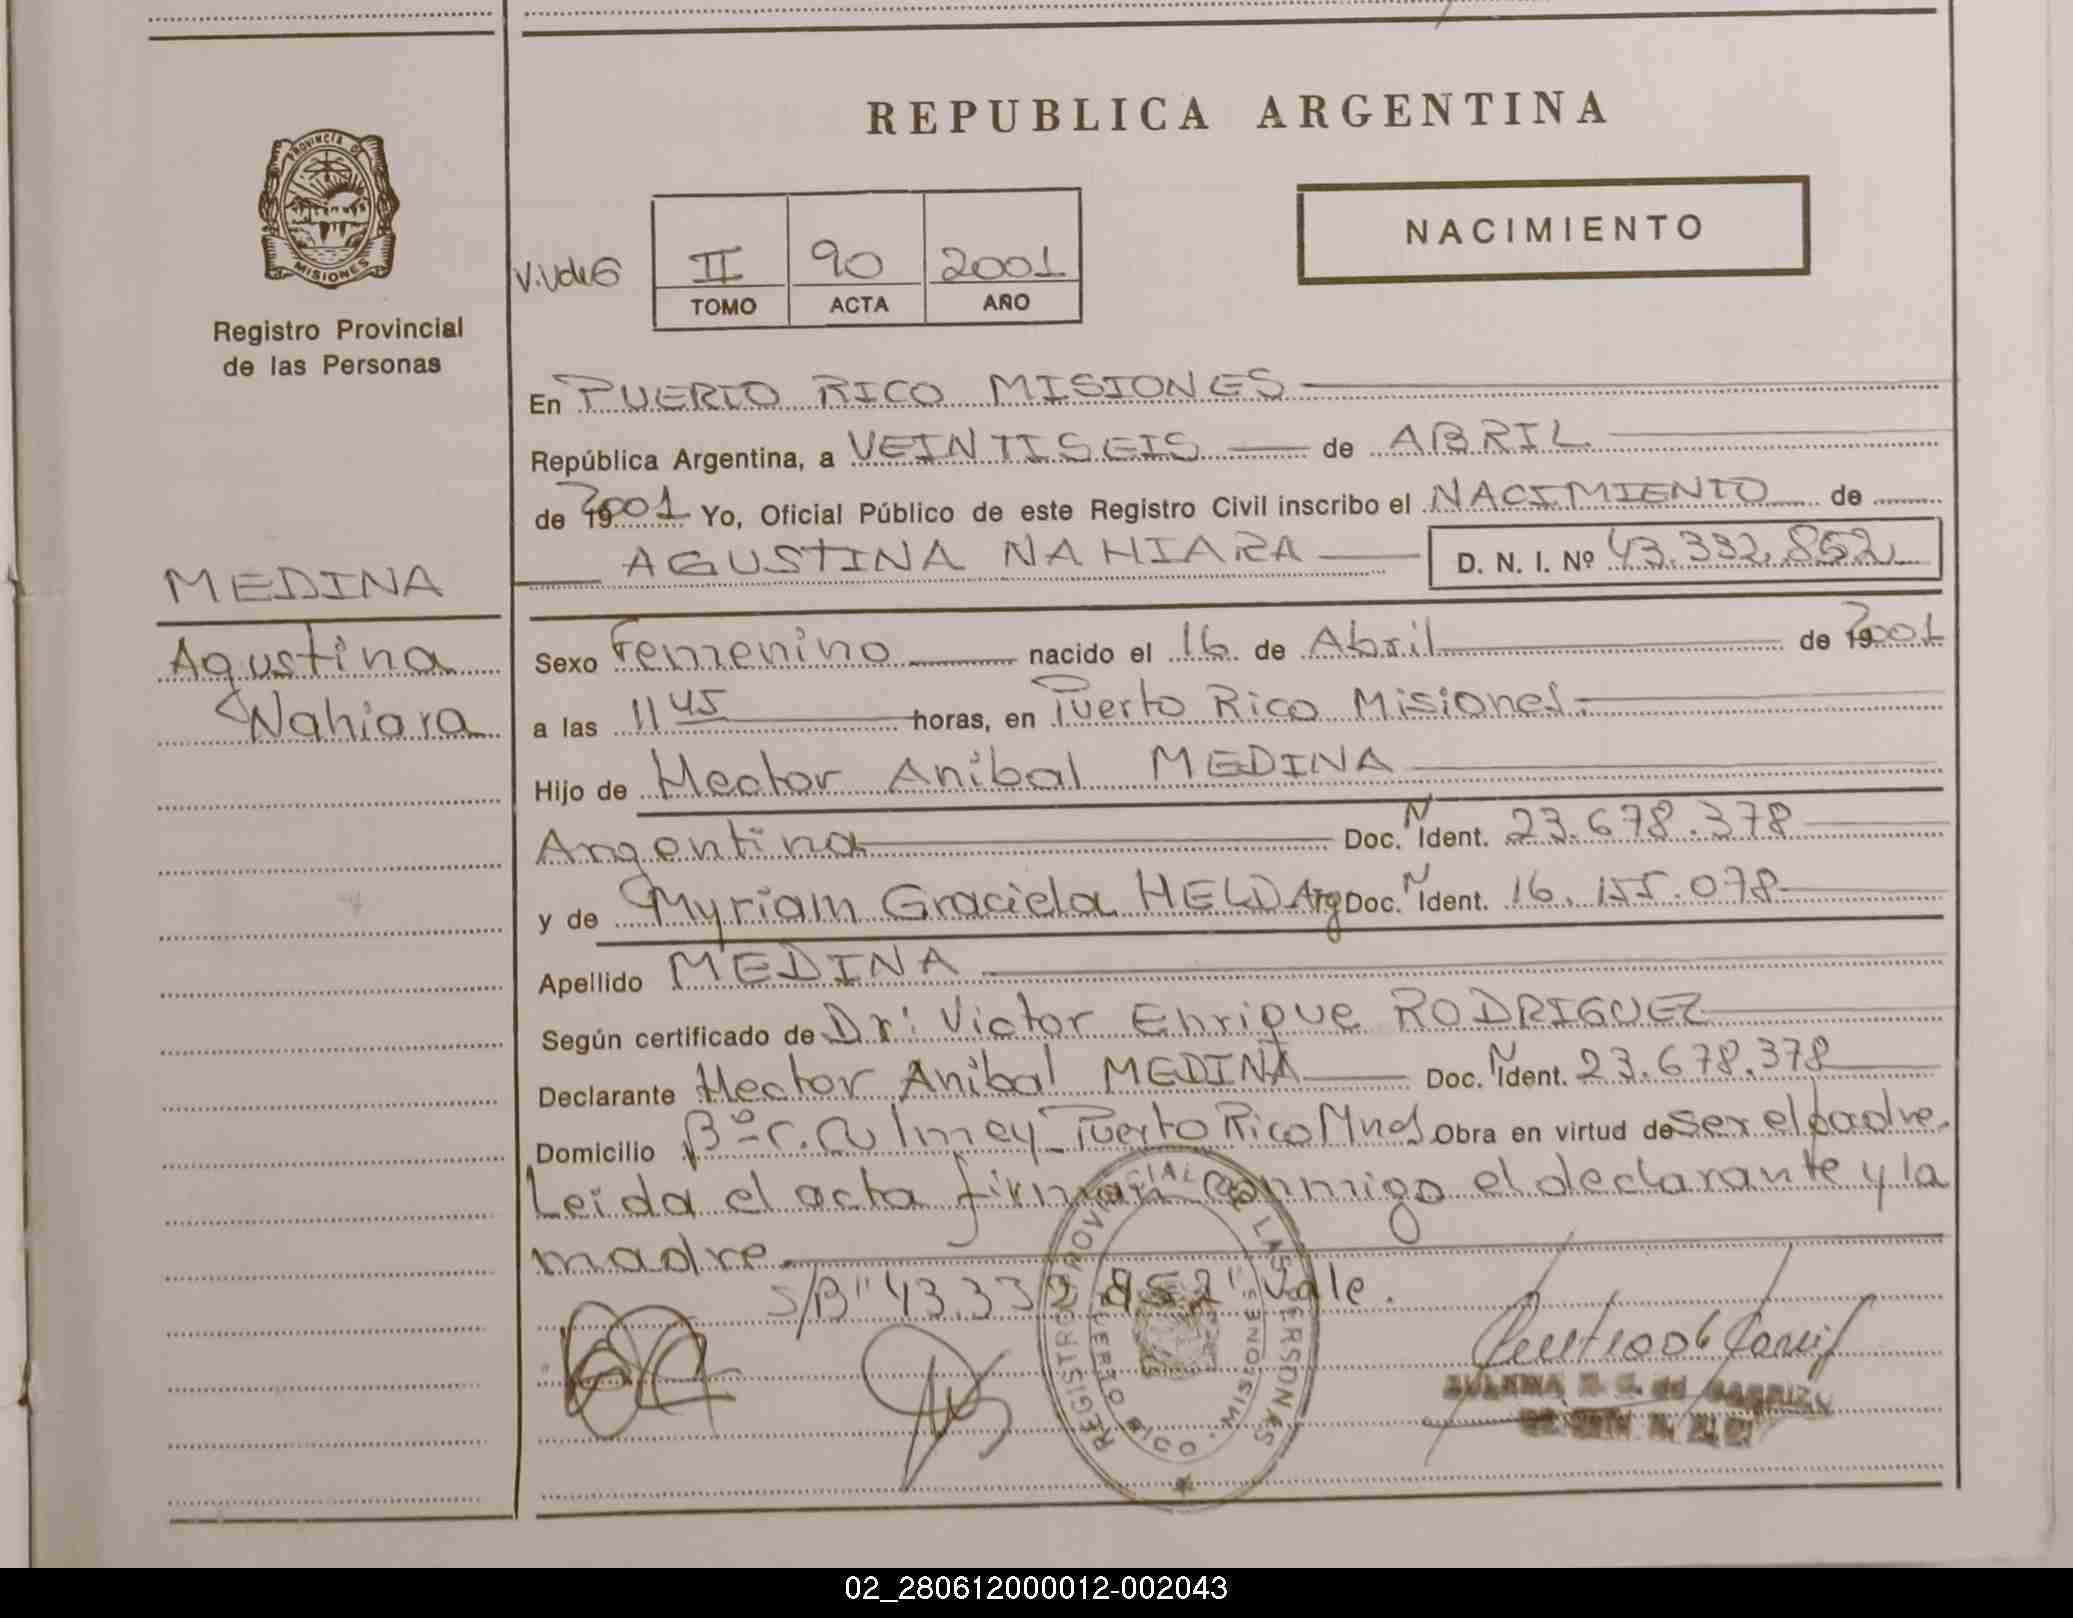 PROVINCIA DE
MISIONES
Registro Provincial
de las Personas
MEDINA
Agustina
Nahiara
REPUBLICA ARGENTINA
NACIMIENTO
II 90 2001
TOMO ACTA AÑO
En PUERTO RICO MISIONES
República Argentina, a VEINTISEIS de ABRIL
de 2001 Yo, Oficial Público de este Registro Civil inscribo el NACIMIENTO de
AGUSTINA NAHIARA D. N. I. Nº 43.332.852
Sexo Femenino nacido el 16 de Abril de 2001
a las 11 45 horas, en Puerto Rico Misiones.
Hijo de Hector Anibal MEDINA
Argentina Doc. N Ident. 23.678.378
y de Myriam Graciela HELD Arg Doc. N Ident. 16.155.078
Apellido MEDINA
Según certificado de Dr: Victor Enrique RODRIGUEZ
Declarante Hector Anibal MEDINA Doc. N Ident. 23.678.378
Domicilio Bº C. Culmey Puerto Rico Mnes Obra en virtud de ser el padre.
Leida el acta firman conmigo el declarante y la
madre
S/B "43.332.852" Vale.
REGISTRO PROVINCIAL DE LAS PERSONAS
PUERTO RICO - MISIONES
02_280612000012-002043